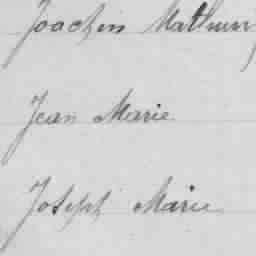 Joachin Mathurin
Jean Marie
Joseph Marie